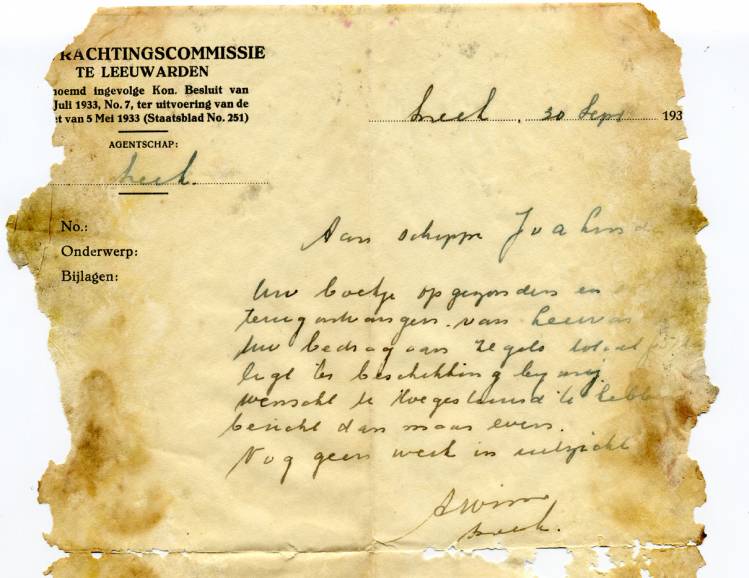 RACHTINGSCOMMISSIE
TE LEEUWARDEN
noemd ingevolge Kon. Besluit van
Juli 1933, No. 7, ter uitvoering van de
et van 5 Mei 1933 (Staatsblad No. 251)
AGENTSCHAP:
Sneek.
Sneek, 30 Sept 193
No.:
Onderwerp:
Bijlagen:
Aan schipper J v a
Uw boekje opgezonden en
terug ontvangen van Leeuwar
Uw bedrag aan zegels totaal
ligt ter beschikking by mij
wenscht te toegestuurd te hebben
bericht dan maar even.
Nog geen werk in uitzicht
Sneek.